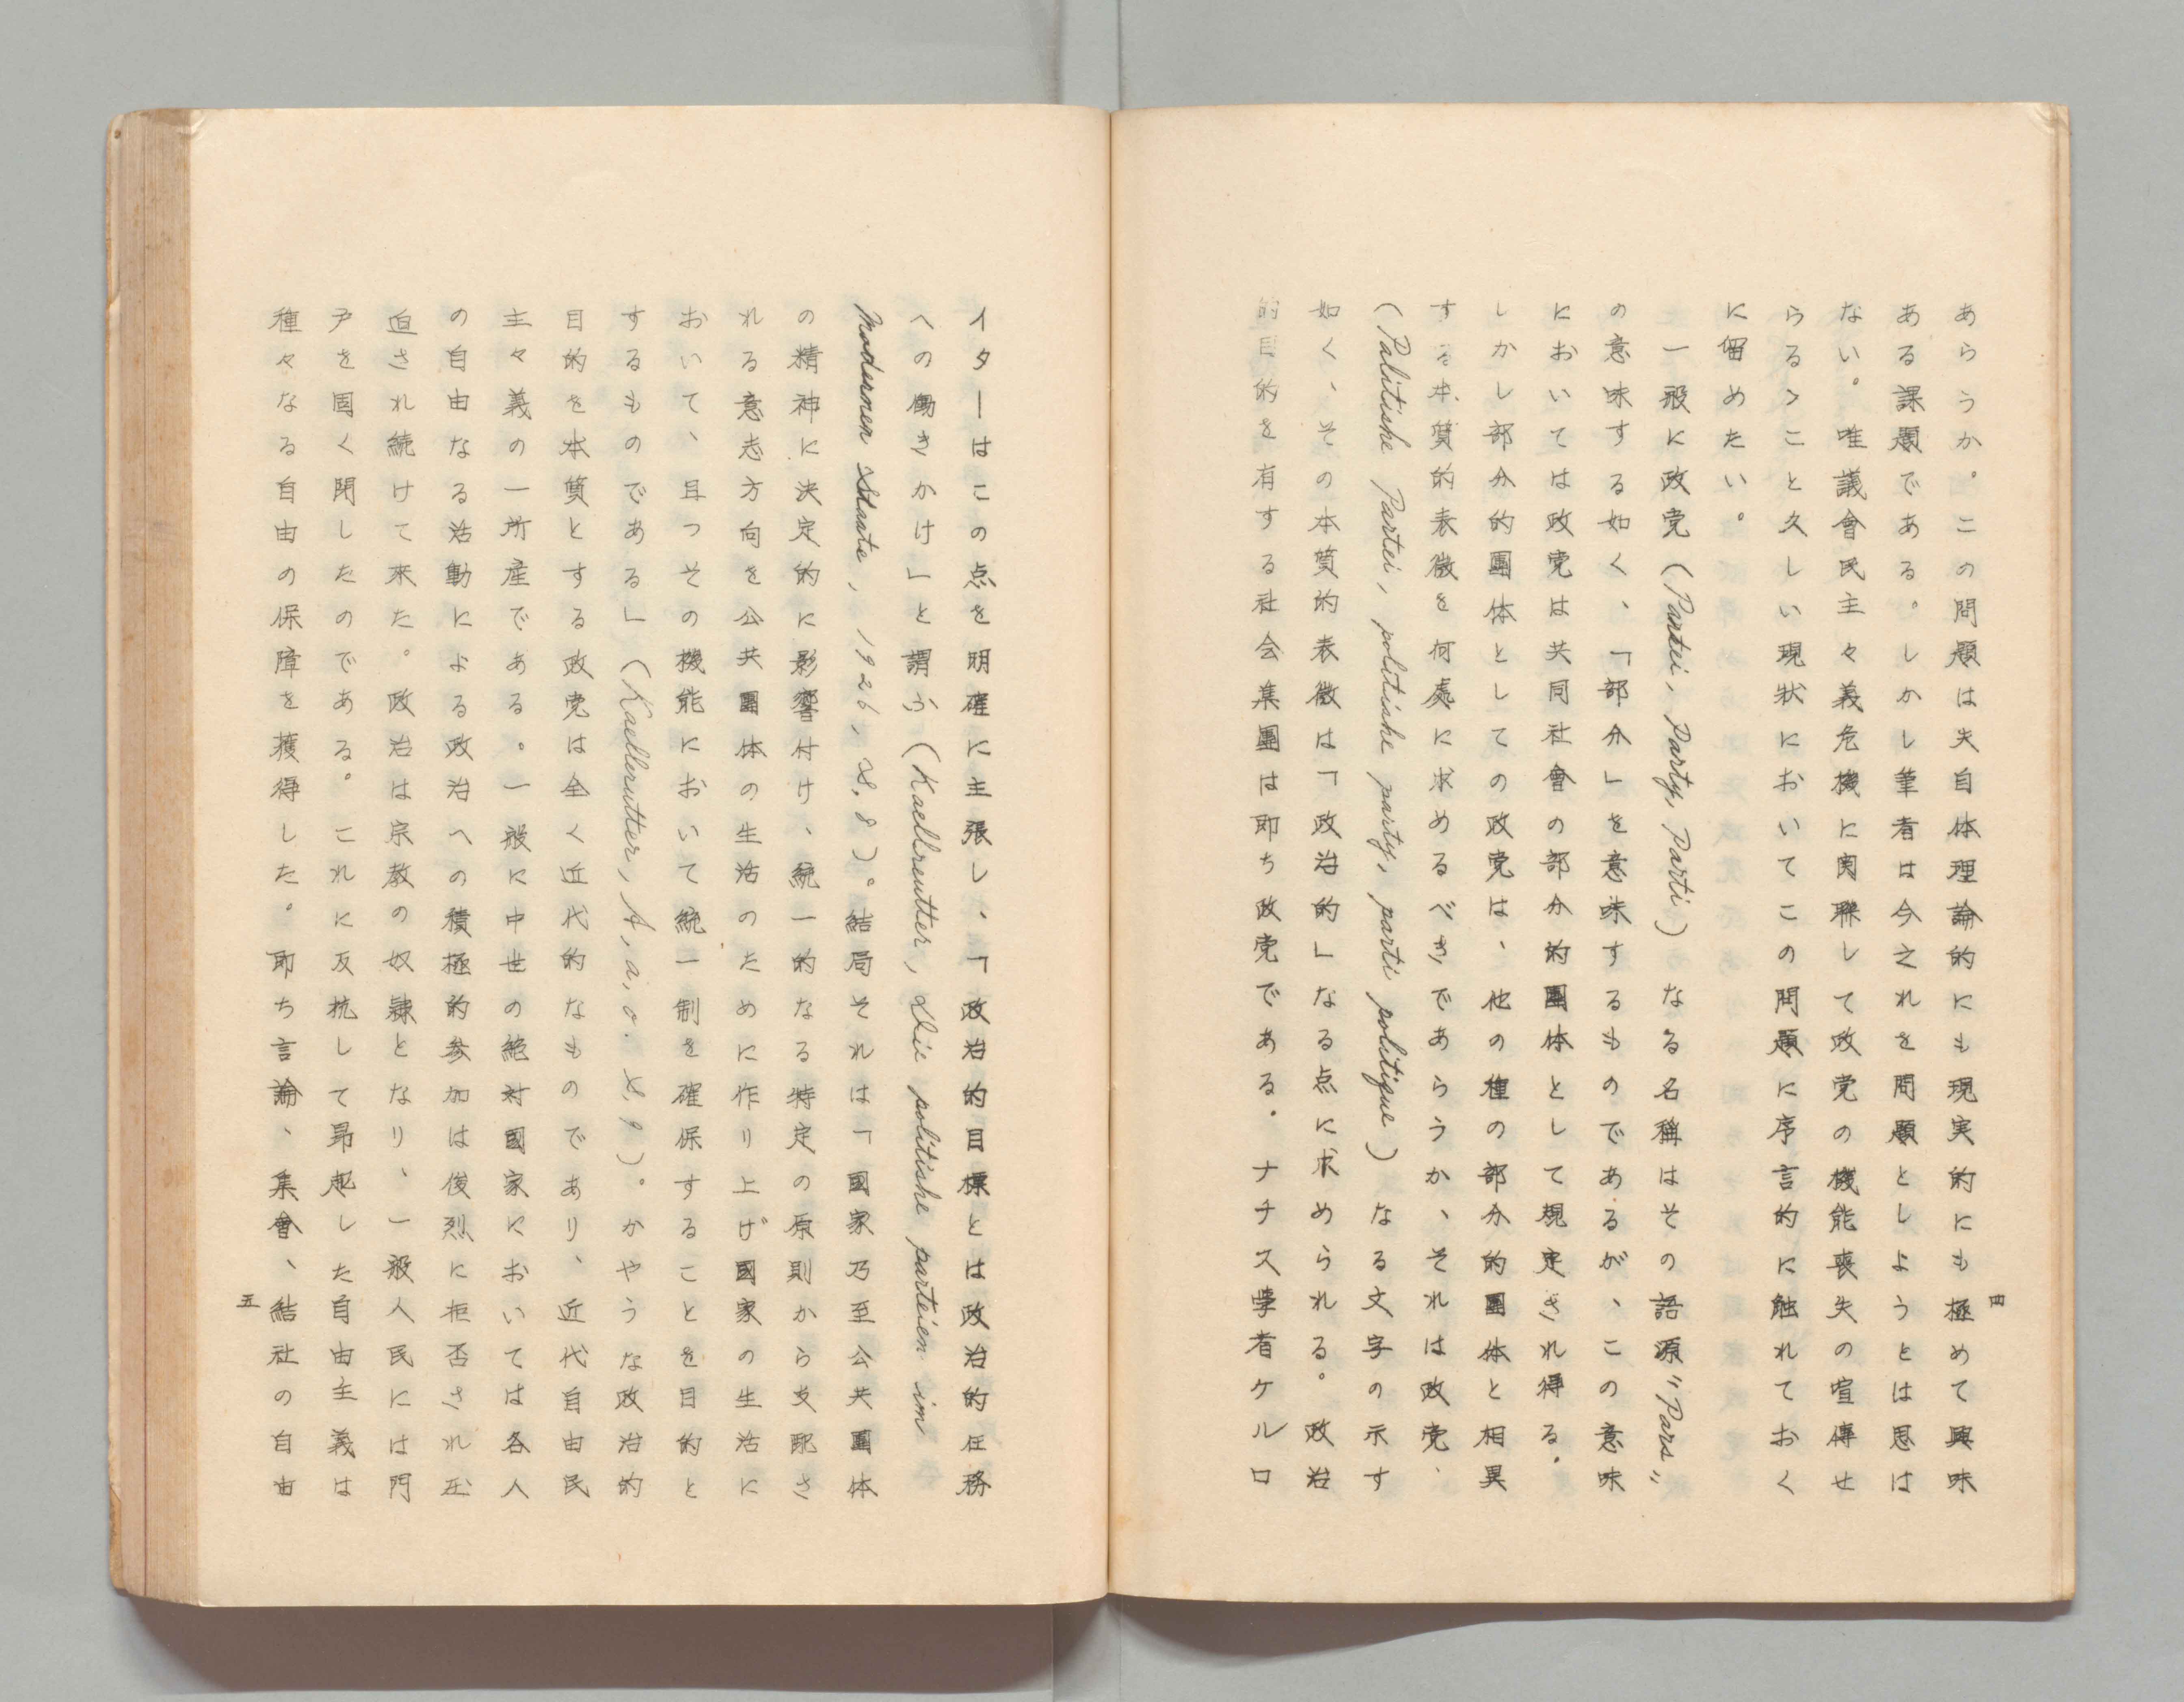 あらうか。この問題は夫自体理論的にも現実的にも極めて興味
ある課題である。しかし筆者は今之れを問題としようとは思は
ない。唯議會民主々義危機に関聯して政党の機能喪失の喧傳せ
らるゝこと久しい現状においてこの問題に序言的に触れておく
に留めたい。
一般に政党（Partei, Party, Parti）なる名稱はその語源〃Pars〃
の意味する如く、「部分」を意味するものであるが、この意味
においては政党は共同社會の部分的團体として規定され得る。
しかし部分的團体としての政党は、他の種の部分的團体と相異
する本質的表徴を何處に求めるべきであらうか、それは政党、
（Palitishe Partei, politishe party, parti politique）なる文字の示す
如く、その本質的表徴は「政治的」なる点に求められる。政治
的目的を有する社会集團は即ち政党である。ナチス学者ケルロ
四
イターはこの点を明確に主張し、「政治的目標とは政治的任務
への働きかけ」と謂う（Kaellreutter, Die politishe parteien im
Modernen Staate, 1926, S. 8）。結局それは「國家乃至公共團体
の精神に決定的に影響付け、統一的なる特定の原則から支配さ
れる意志方向を公共團体の生活のために作り上げ國家の生活に
おいて、且つその機能において統一制を確保することを目的と
するものである」（Kaellerutter, A, a, o. S, 9）。かやうな政治的
目的を本質とする政党は全く近代的なものであり、近代自由民
主々義の一所産である。一般に中世の絶対國家においては各人
の自由なる活動による政治への積極的参加は俊烈に拒否され圧
迫され続けて来た。政治は宗教の奴隷となり、一般人民には門
戸を固く閉したのである。これに反抗して昴起した自由主義は
種々なる自由の保障を獲得した。即ち言論、集會、結社の自由
五